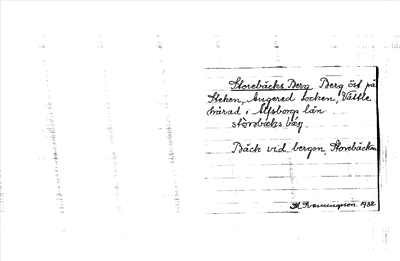 Storebäcks Berg Berg öst på
Steken, Angered socken, Vättle
härad i Älfsborgs län
storbäcks bærj.
Bäck vid bergen, Storebäcken
1932